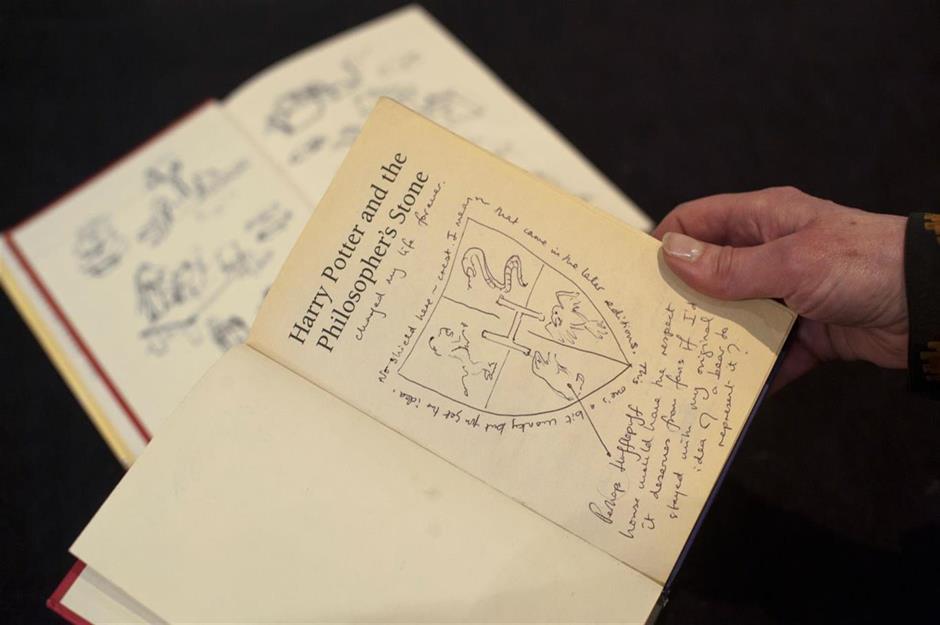 Harry Potter and the
Philosopher's Stone
changed my life forever.
No shield here – crest. I mean
that came in the later editions.
This one's a bit wonky but you get the idea!
Perhaps Hufflepuff
house would have the respect
it deserves from fans if I'd
stayed with my original
idea of a bear to
represent it?